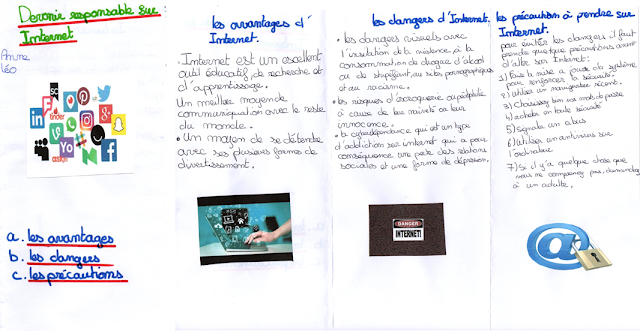 Devenir responsable sur
Internet
Anne
Léo
a. les avantages
b. les dangers
c. les précautions
les avantages d'
Internet.
• Internet est un excellent
outil éducatif de recherche et
d'apprentissage.
Un meilleur moyen de
communication avec le reste
du monde.
• Un moyen de se détendre
avec ses plusieurs formes de
divertissement.
les dangers d'Internet.
• les dangers visuels avec
l'incitation à la violence, à la
consommation de drogue d'alcool
ou de stupéfiant, au sites pornographiques
et au racisme.
• les risques d'escroquerie
à cause de leur naïveté ou leur
innocence.
• la cyberdépendance qui est un type
d'addiction sur internet qui a pour
conséquence une perte des relations
sociales et une forme de dépression.
DANGER
INTERNET!
les précaution à prendre sur
Internet.
pour éviter les dangers il faut
prendre quelque précautions avant
d'aller sur Internet:
1) Fais la mise a jour du système
pour renforcer la sécurité.
2) Utiliser un navigateur récent.
3) Choisissez bien vos mots de passe
4) acheter en toute sécurité
5) Signaler un abus
6) Utiliser un antivirus sur
l'ordinateur
7) Si il y a quelque chose que
vous ne comprenez pas, demandez
à un adulte.